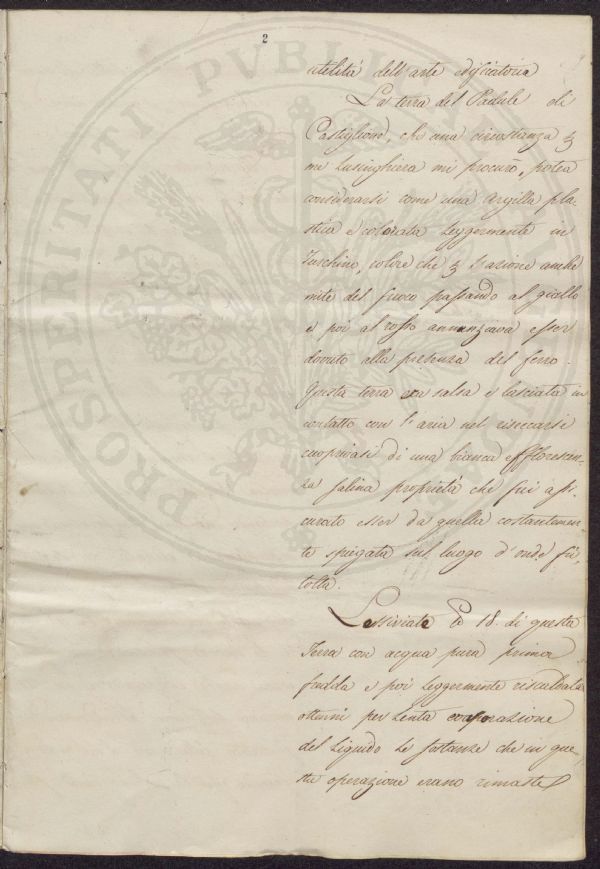 2
utilità dell'arte edificatoria
La terra del Padule di
Castiglione, che una circostanza p
me lusinghiera mi procurò, potea
considerarsi come una Argilla pla-
stica e colorata leggermente in
Turchino, colore che p l'azione anche
mite del fuoco passando al giallo
e poi al rosso annunziava esser
dovuto alla presenza del ferro.
Questa terra era salsa e lasciata in
contatto con l'aria nel riseccarsi
cuoprivasi di una bianca efflorescen-
za salina proprietà che fui assi-
curato esser da quella costantemen-
te spiegata sul luogo d'onde fù
tolta.
Lessiviate 18. di questa
Terra con acqua pura prima
fredda e poi leggermente riscaldata
ottenni per lenta evaporazione
del liquido le sostanze che in que-
sta operazione erano rimaste
PROSPERITATI PVBLICAE